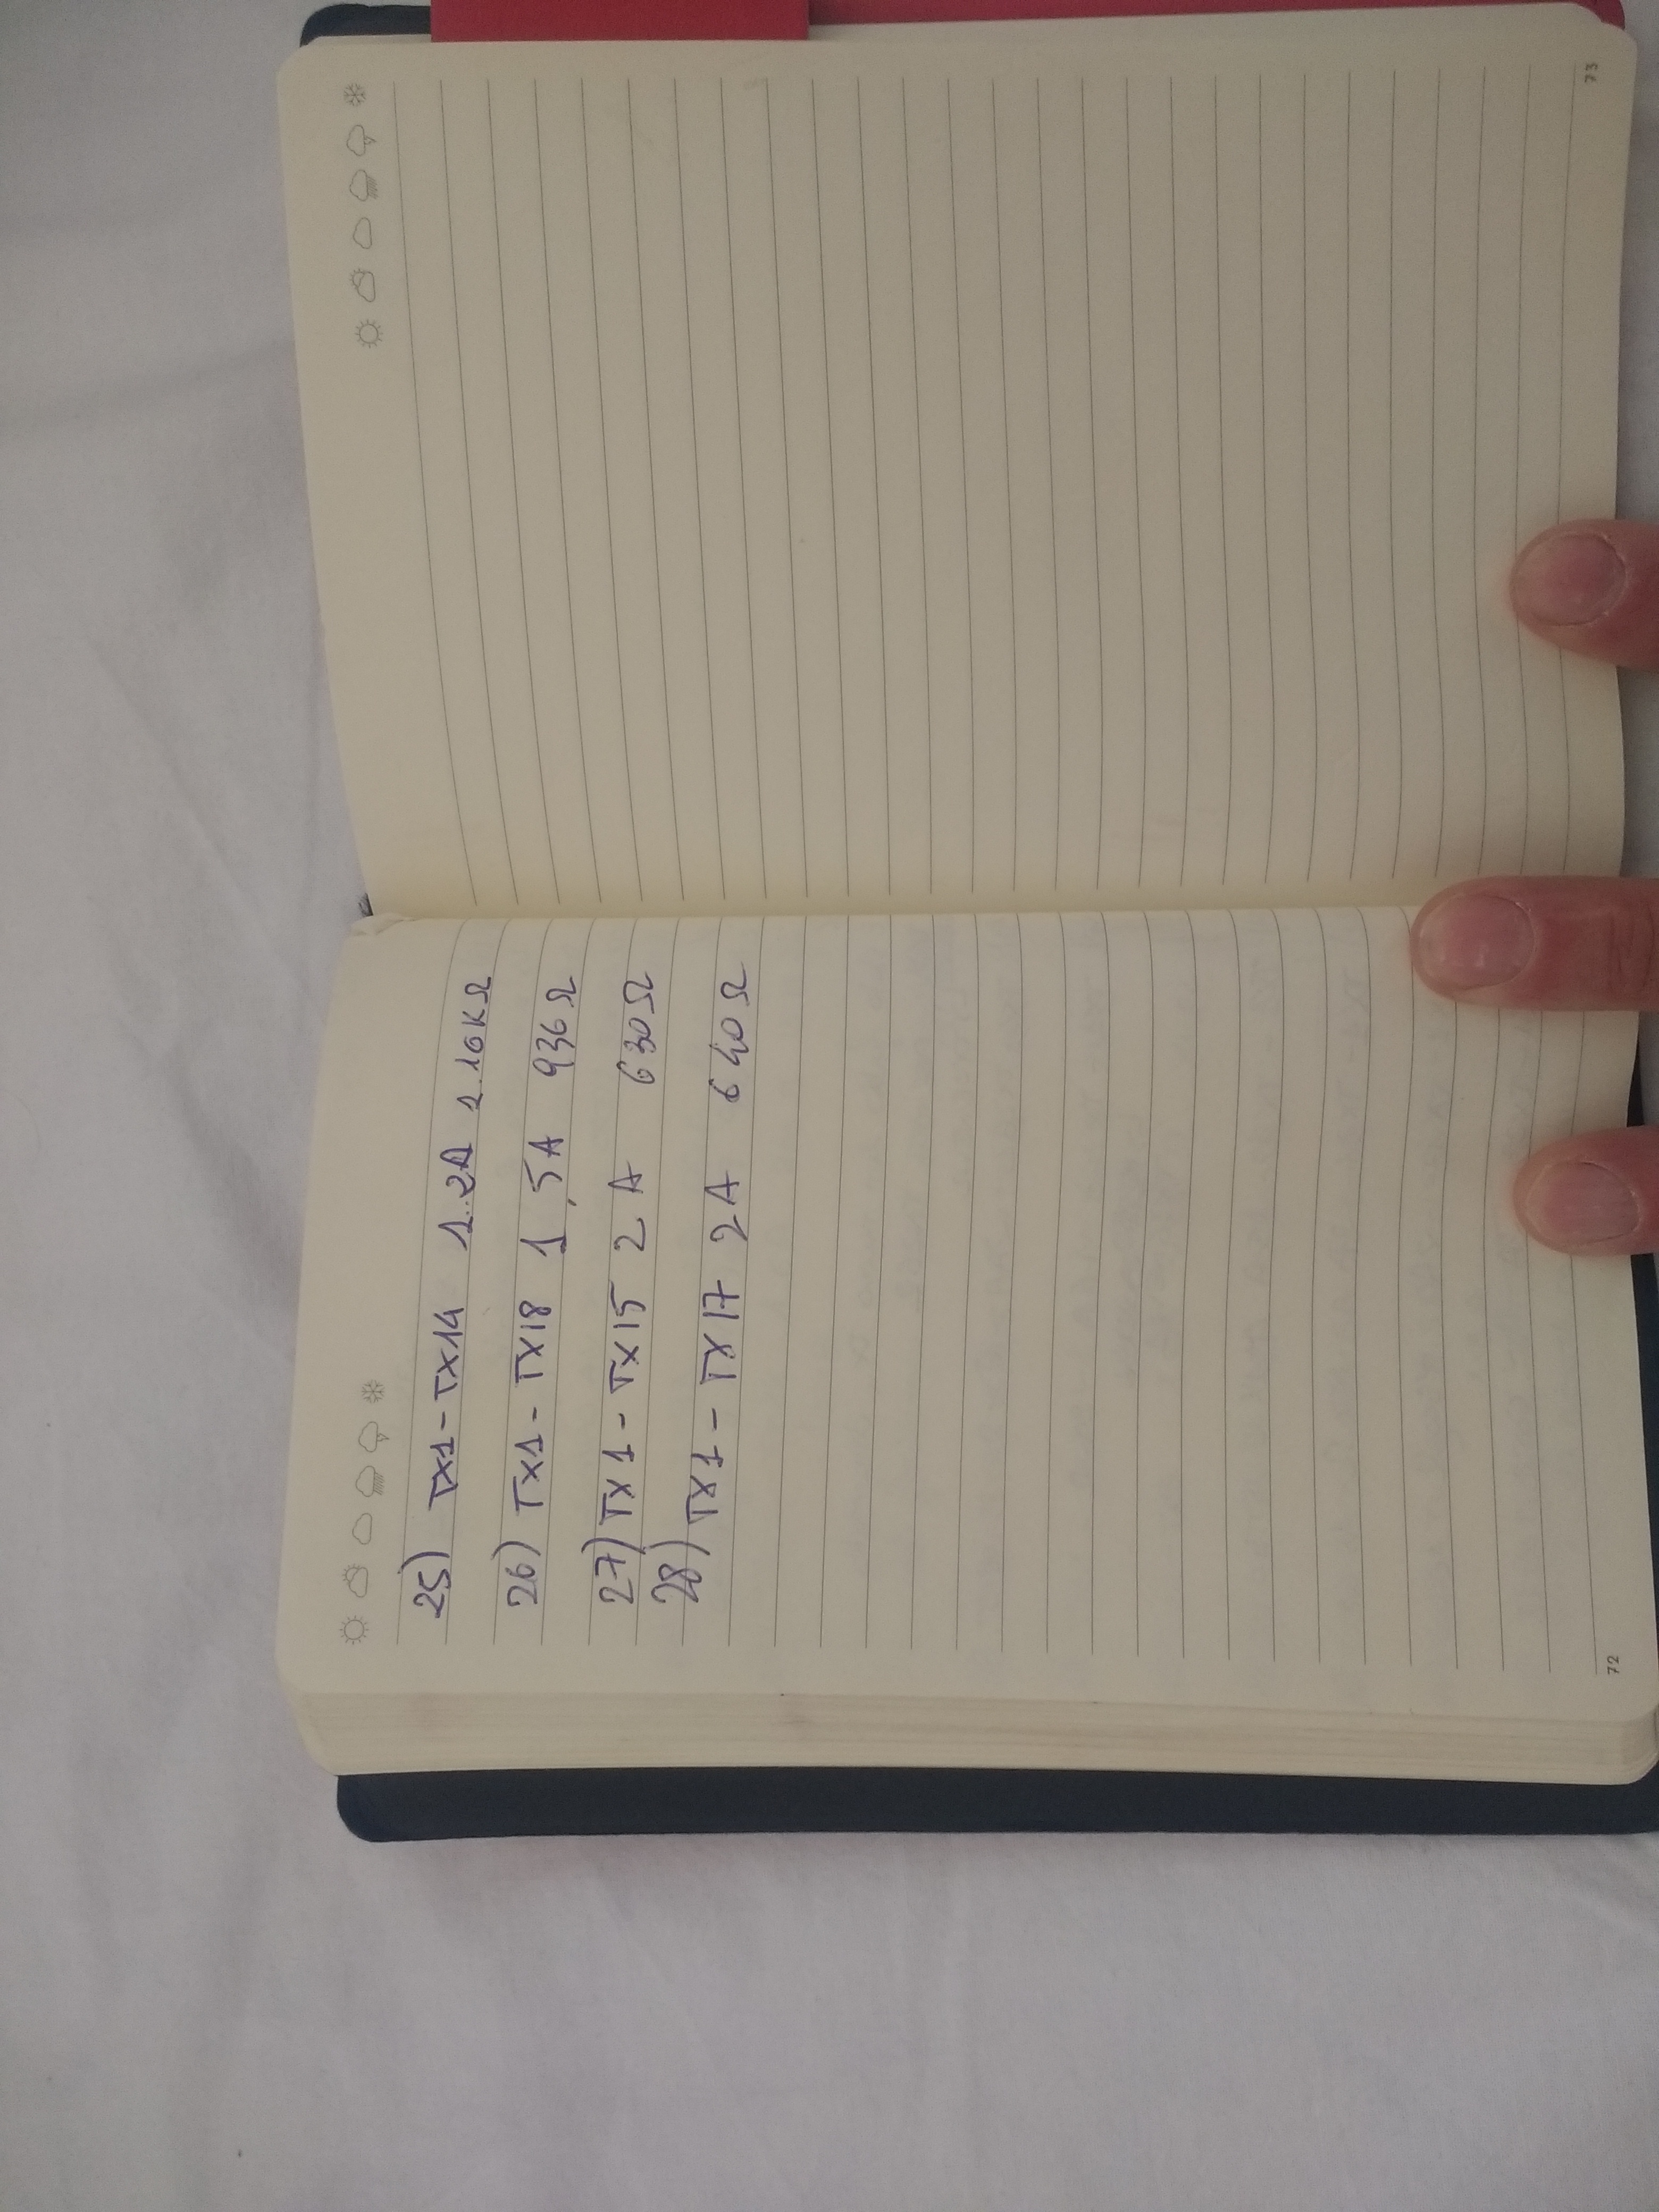 25) TX1-TX14 1.2A 1.16KΩ
26) TX1 - TX18 1,5A 936Ω
27) TX1 - TX15 2 A 630Ω
28) TX1 - TX17 2A 640Ω
72
73